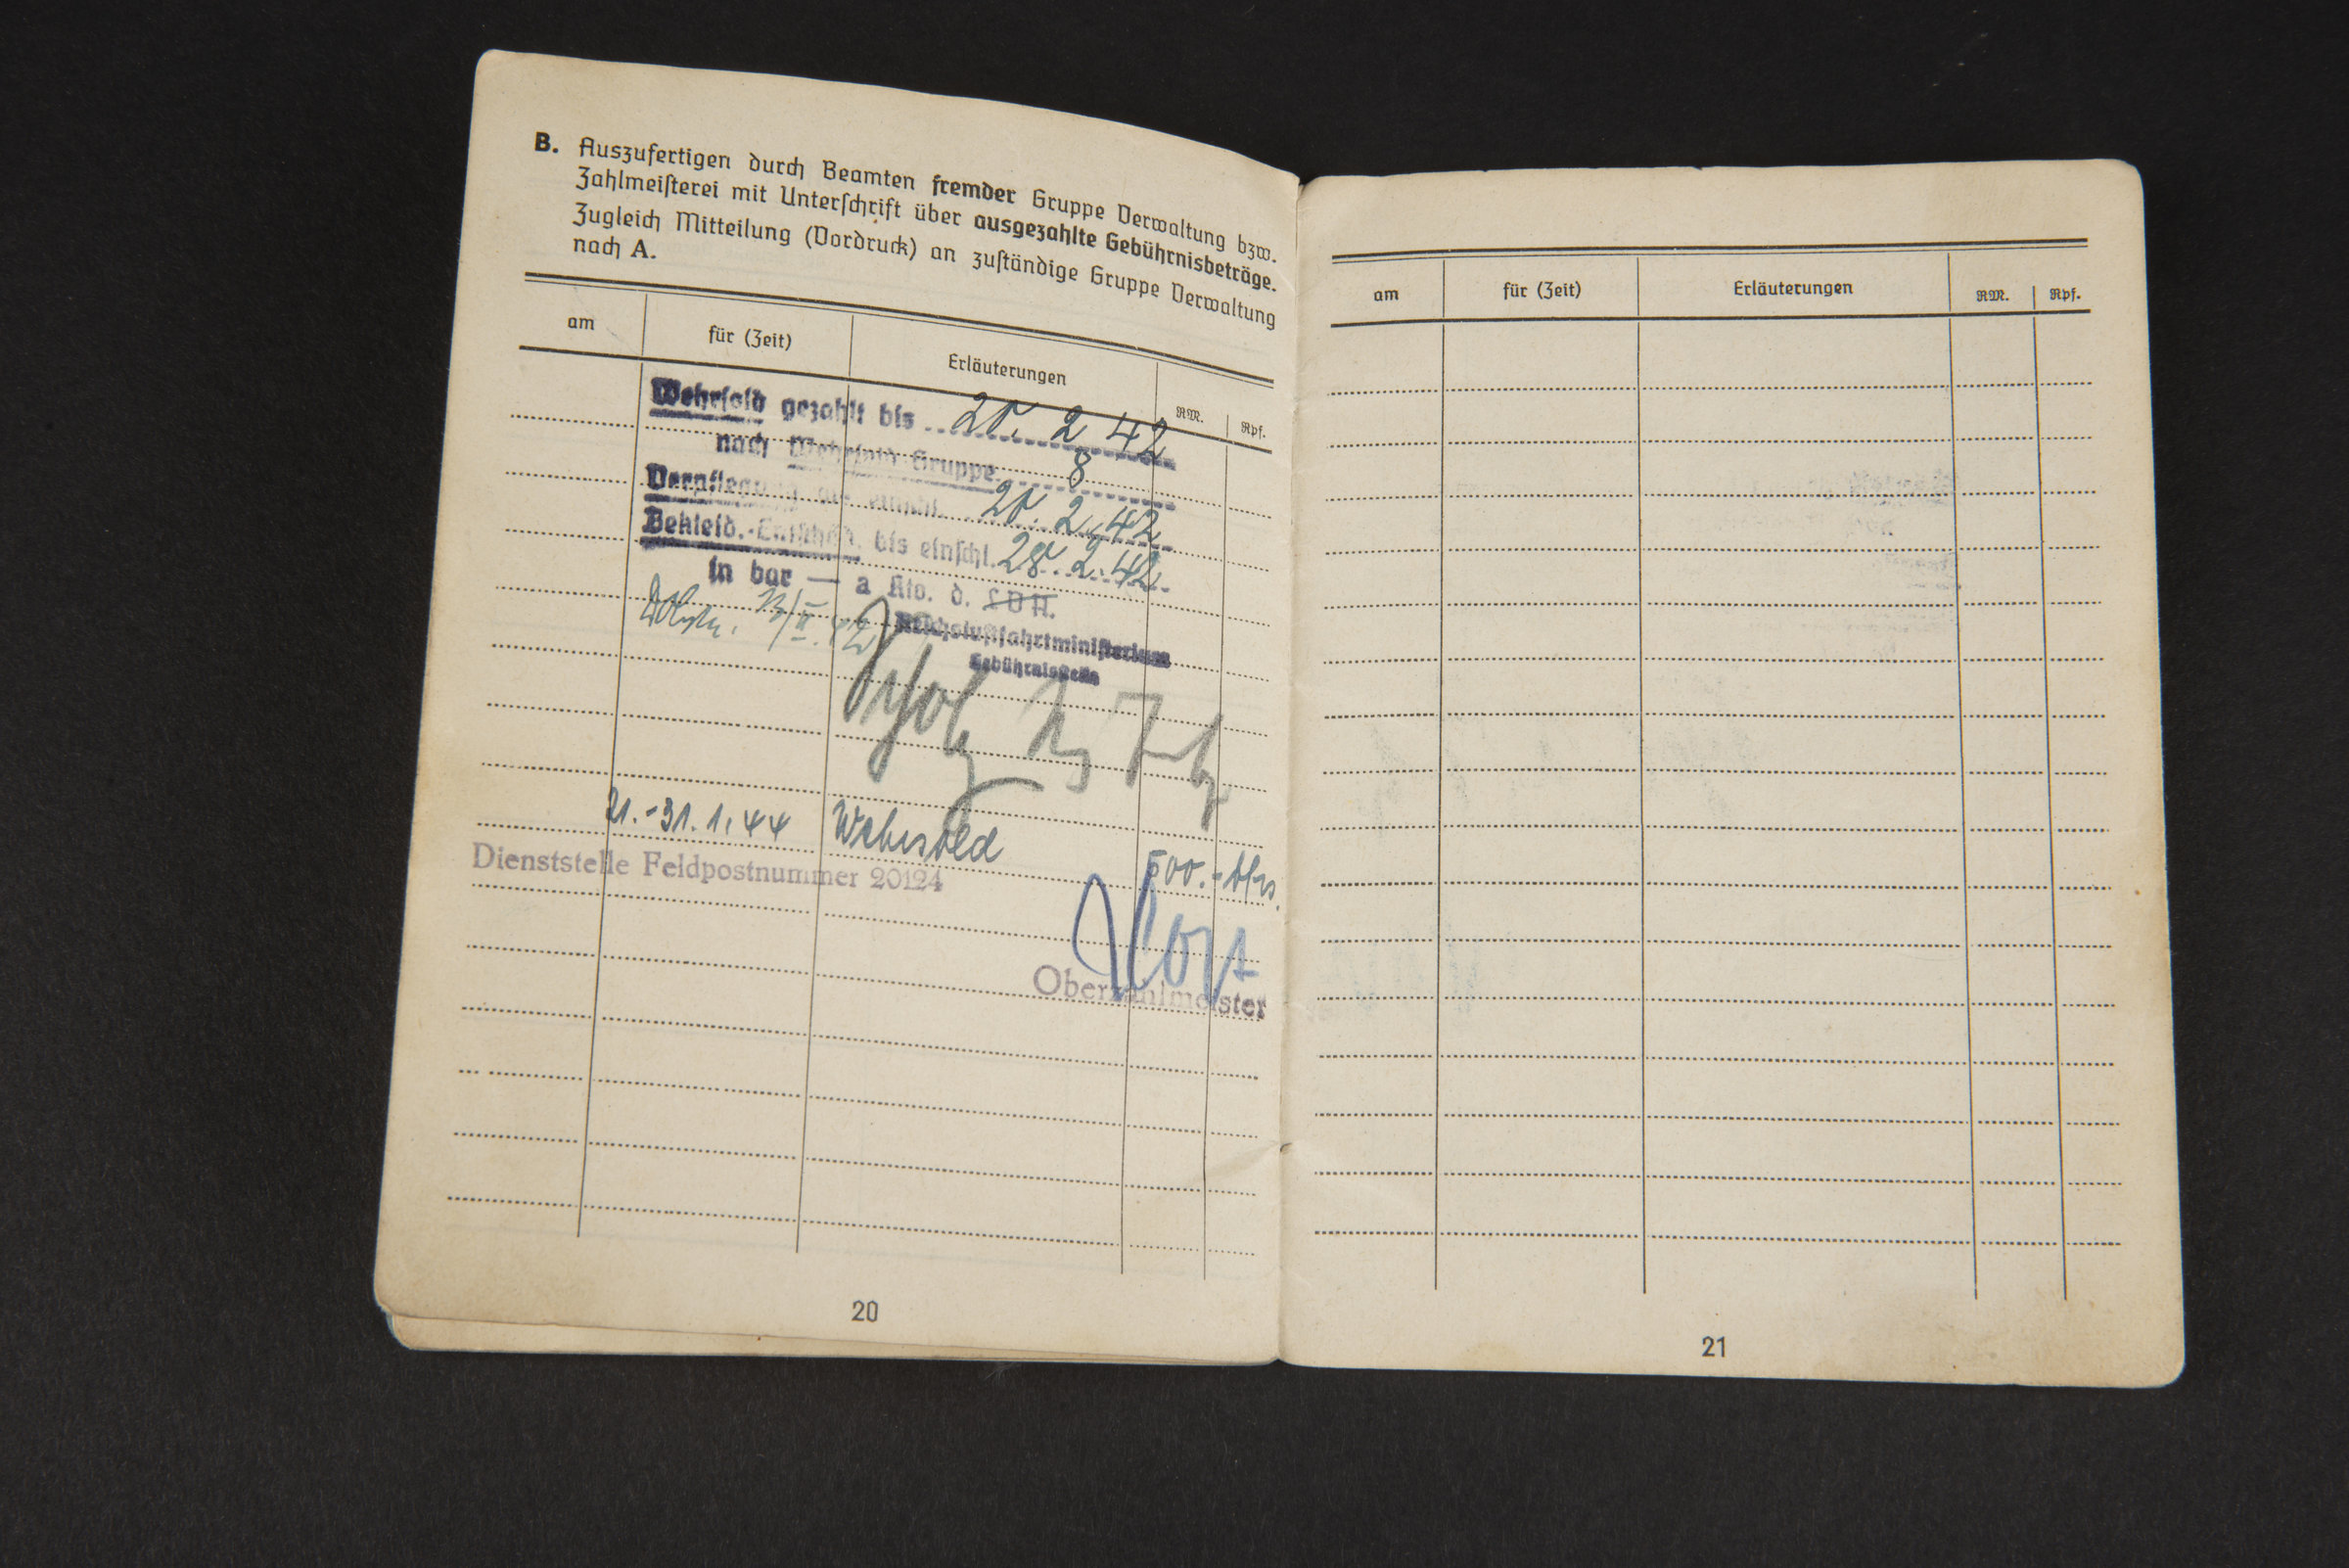 B. Auszufertigen durch Beamten fremder Gruppe Verwaltung bzw.
Zahlmeisterei mit Unterschrift über ausgezahlte Gebührnisbeträge.
Zugleich Mitteilung (Vordruck) an zuständige Gruppe Verwaltung
nach A.
am für (Zeit) Erläuterungen RM. Rpf.
Wehrsold gezahlt bis 28. 2 42
nach Wehrsold Gruppe 8
Verpflegung einschl. 28. 2. 42
Bekleid.-Entschäd. bis einschl. 28. 2. 42
in bar — a Kto. d. LDH.
Reichsluftfahrtministerium
Gebührnisstelle
21.-31.1.44 Wehrsold 500.-
Dienststelle Feldpostnummer 20124
Oberzahlmeister
20
am für (Zeit) Erläuterungen RM. Rpf.
21